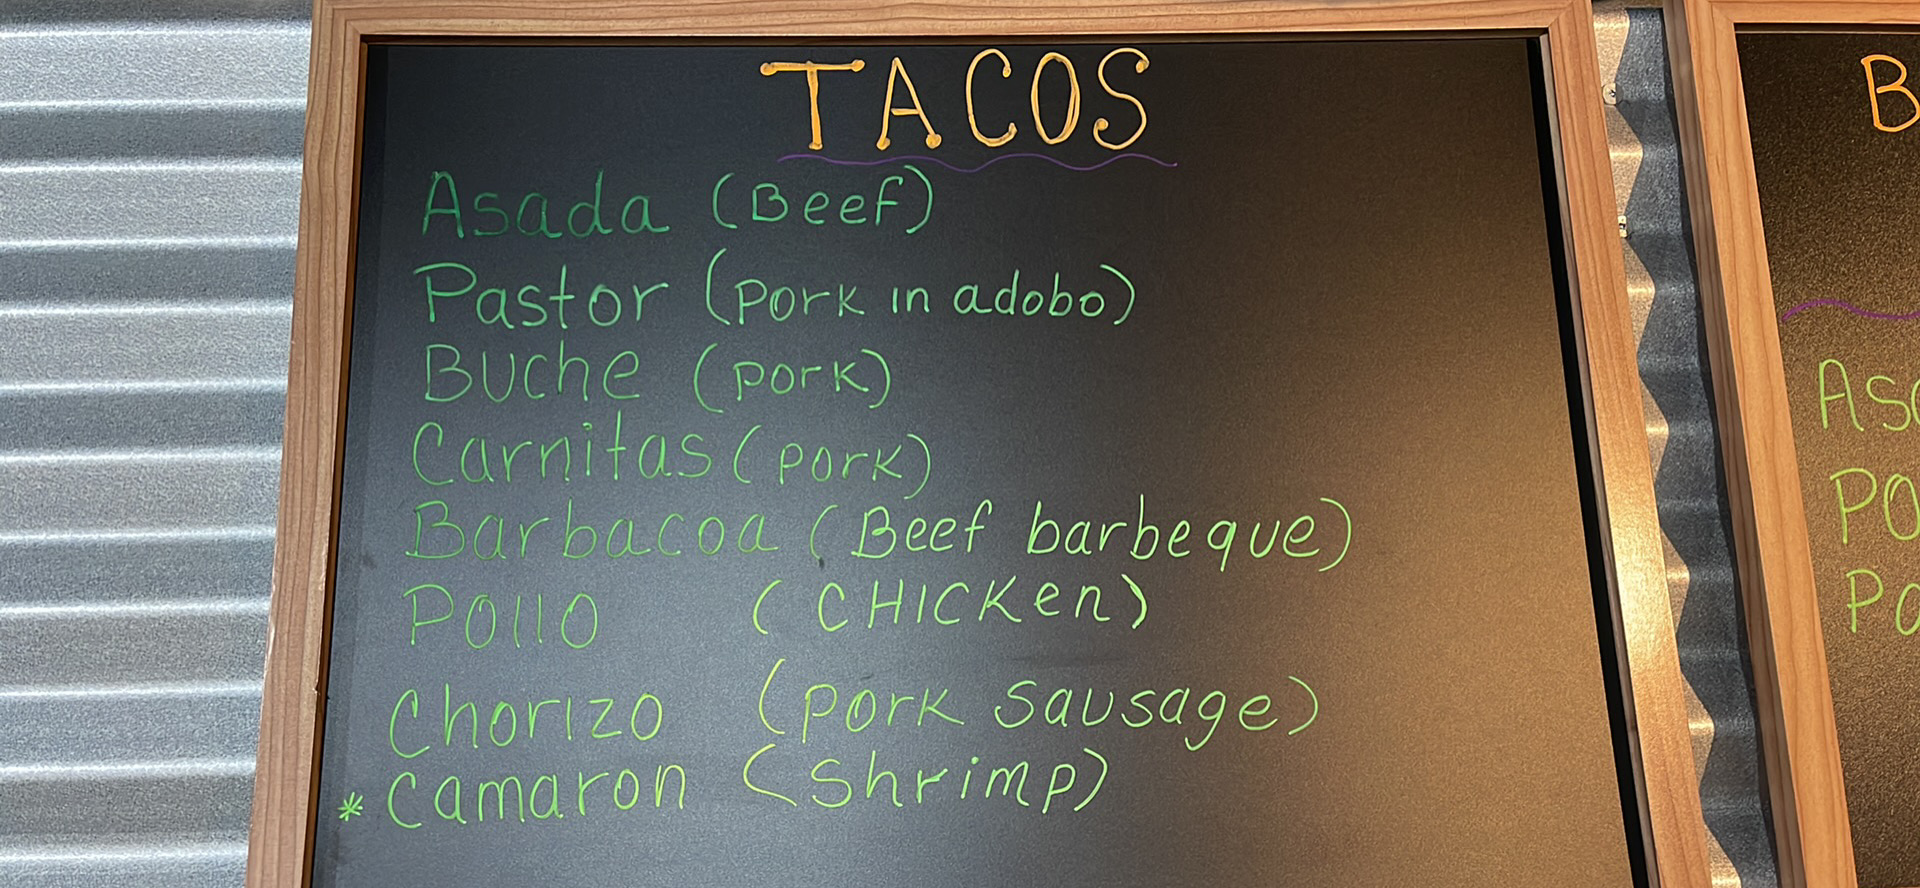 TACOS
Asada (Beef)
Pastor (pork in adobo)
Buche (pork)
Carnitas (pork)
Barbacoa (Beef barbeque)
Pollo (CHICKen)
Chorizo (pork sausage)
* Camaron (shrimp)